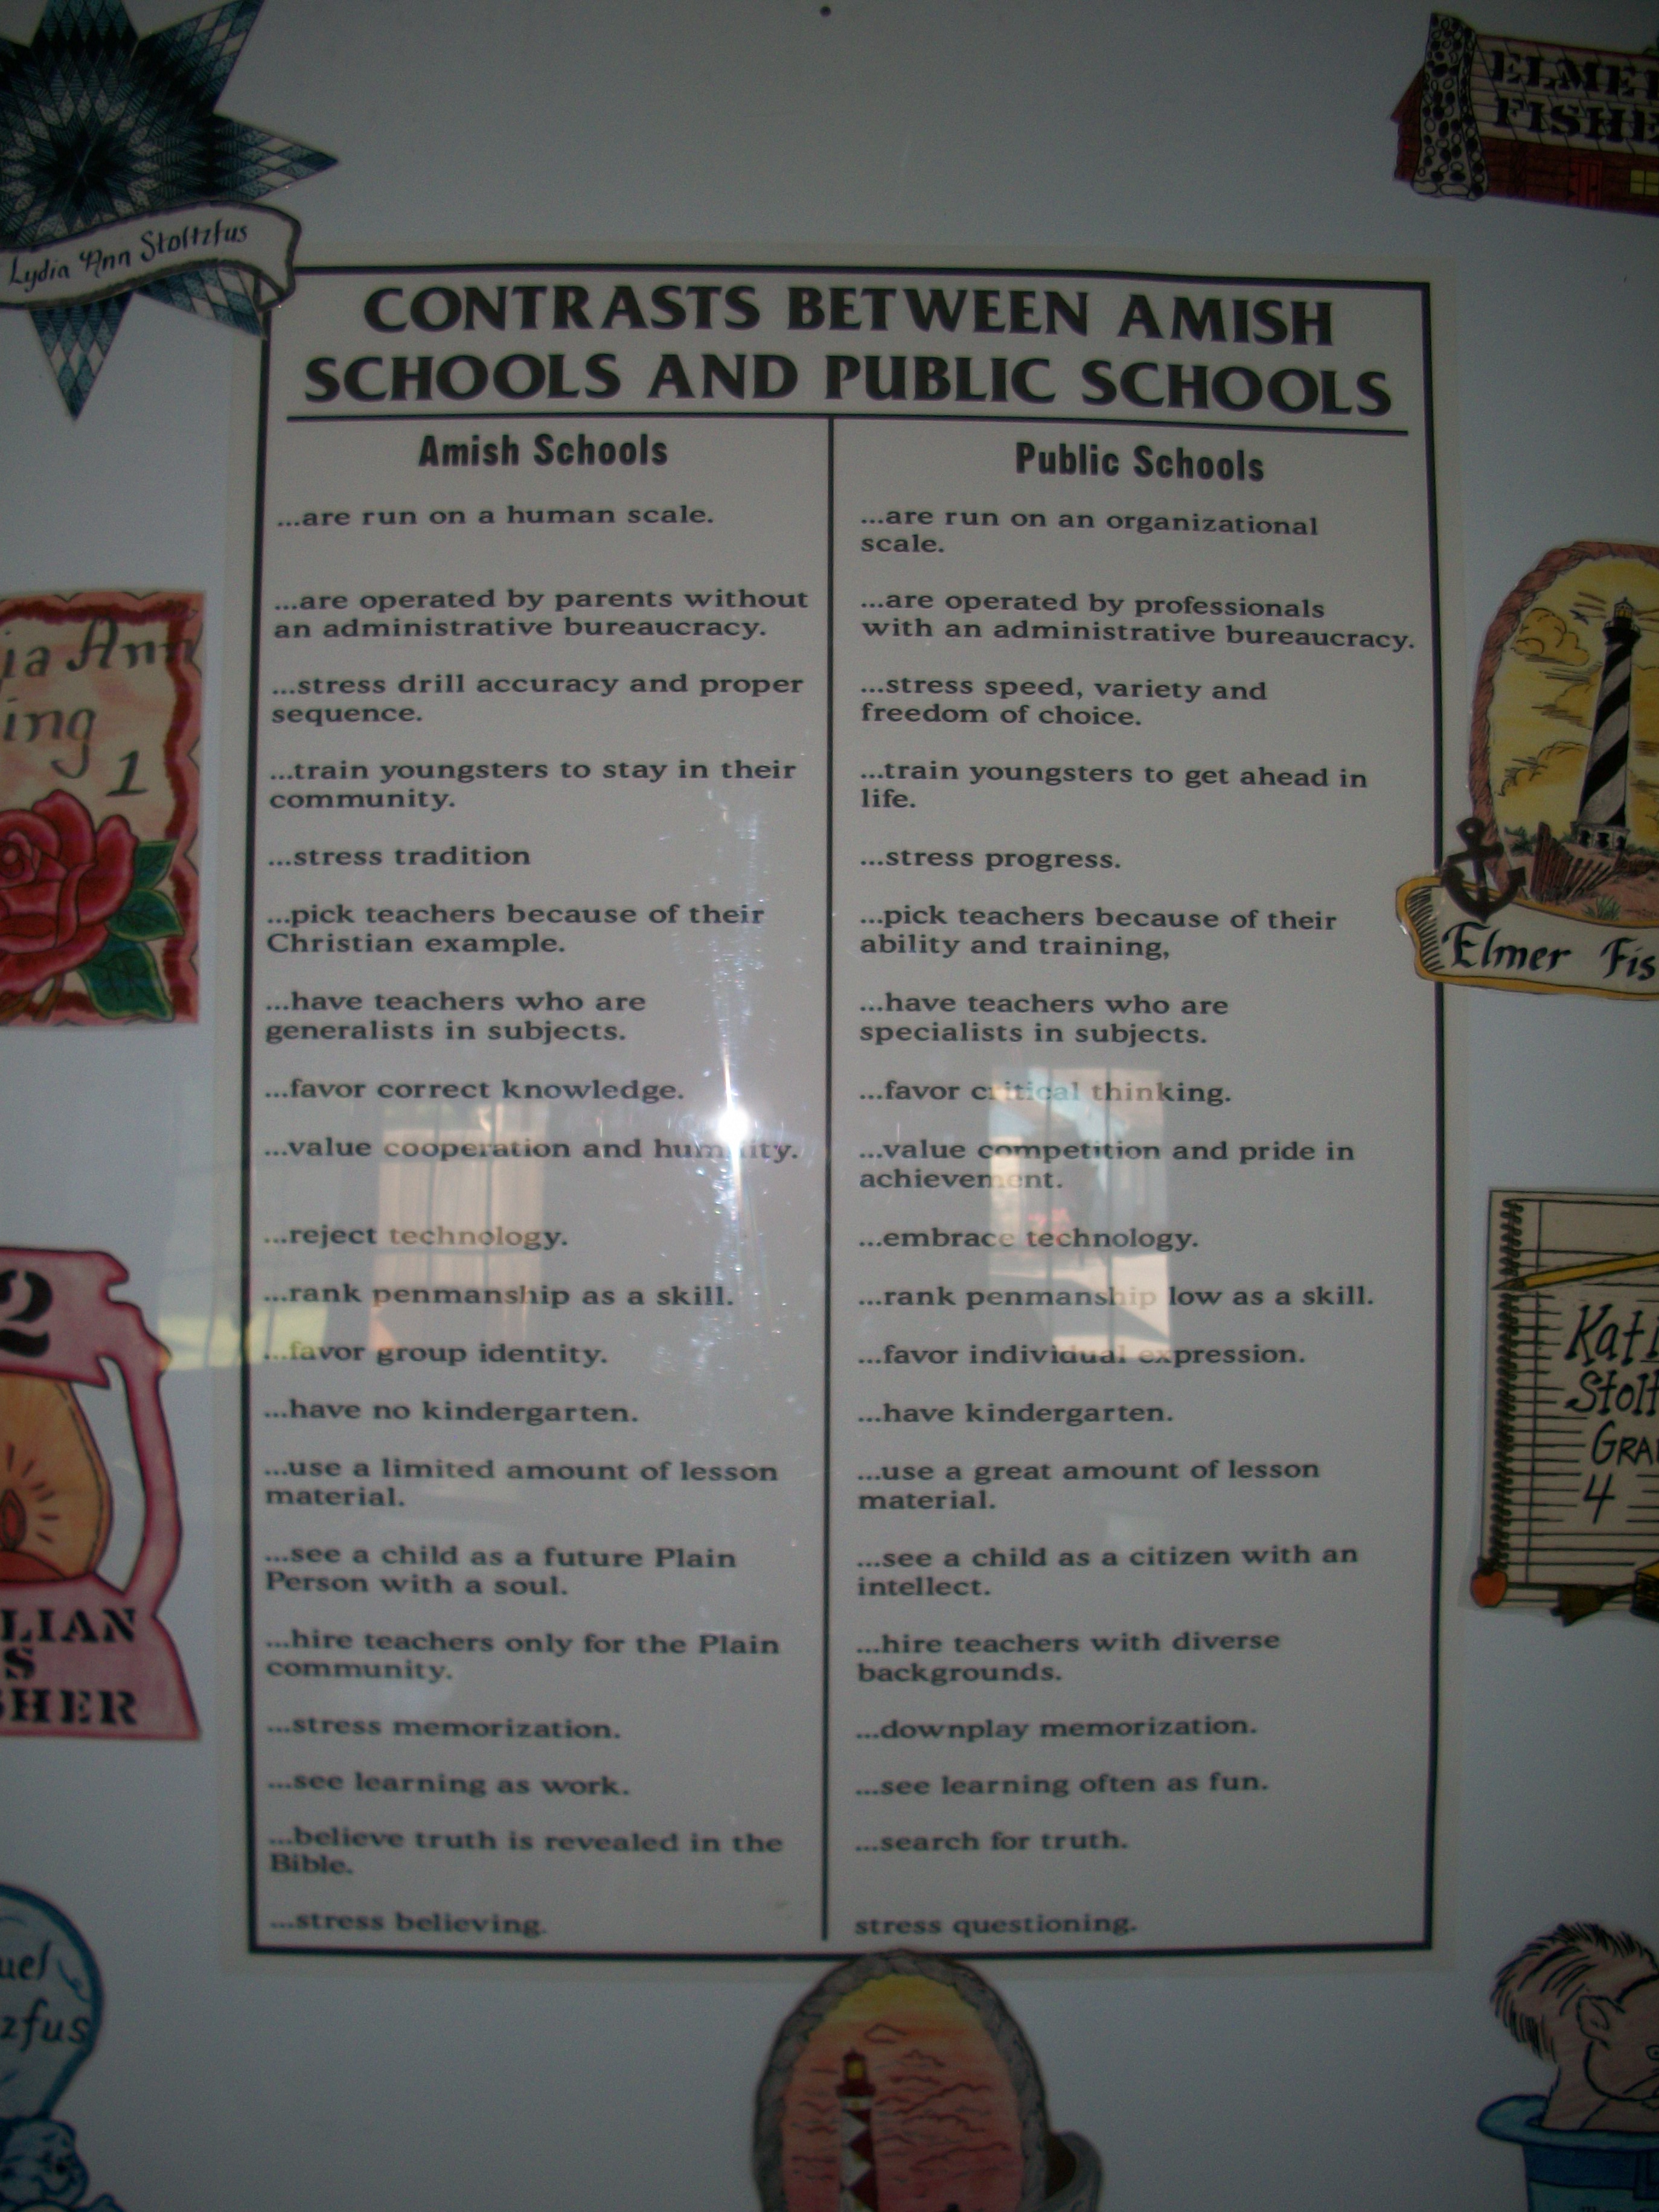 Lydia Ann Stoltzfus
FISHE
CONTRASTS BETWEEN AMISH
SCHOOLS AND PUBLIC SCHOOLS
Amish Schools
...are run on a human scale.
...are operated by parents without
an administrative bureaucracy.
...stress drill accuracy and proper
sequence.
...train youngsters to stay in their
community.
...stress tradition
...pick teachers because of their
Christian example.
...have teachers who are
generalists in subjects.
...favor correct knowledge.
...value cooperation and humility.
...reject technology.
...rank penmanship as a skill.
...favor group identity.
...have no kindergarten.
...use a limited amount of lesson
material.
...see a child as a future Plain
Person with a soul.
...hire teachers only for the Plain
community.
...stress memorization.
...see learning as work.
...believe truth is revealed in the
Bible.
...stress believing.
Public Schools
...are run on an organizational
scale.
...are operated by professionals
with an administrative bureaucracy.
...stress speed, variety and
freedom of choice.
...train youngsters to get ahead in
life.
...stress progress.
...pick teachers because of their
ability and training,
...have teachers who are
specialists in subjects.
...favor critical thinking.
...value competition and pride in
achievement.
...embrace technology.
...rank penmanship low as a skill.
...favor individual expression.
...have kindergarten.
...use a great amount of lesson
material.
...see a child as a citizen with an
intellect.
...hire teachers with diverse
backgrounds.
...downplay memorization.
...see learning often as fun.
...search for truth.
stress questioning.
ia Ann
ing
1
Elmer Fis
2
LIAN
S
SHER
Kati
Stolt
GRA
4
uel
zfus